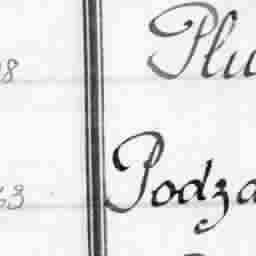 8 Plu
63 Podza